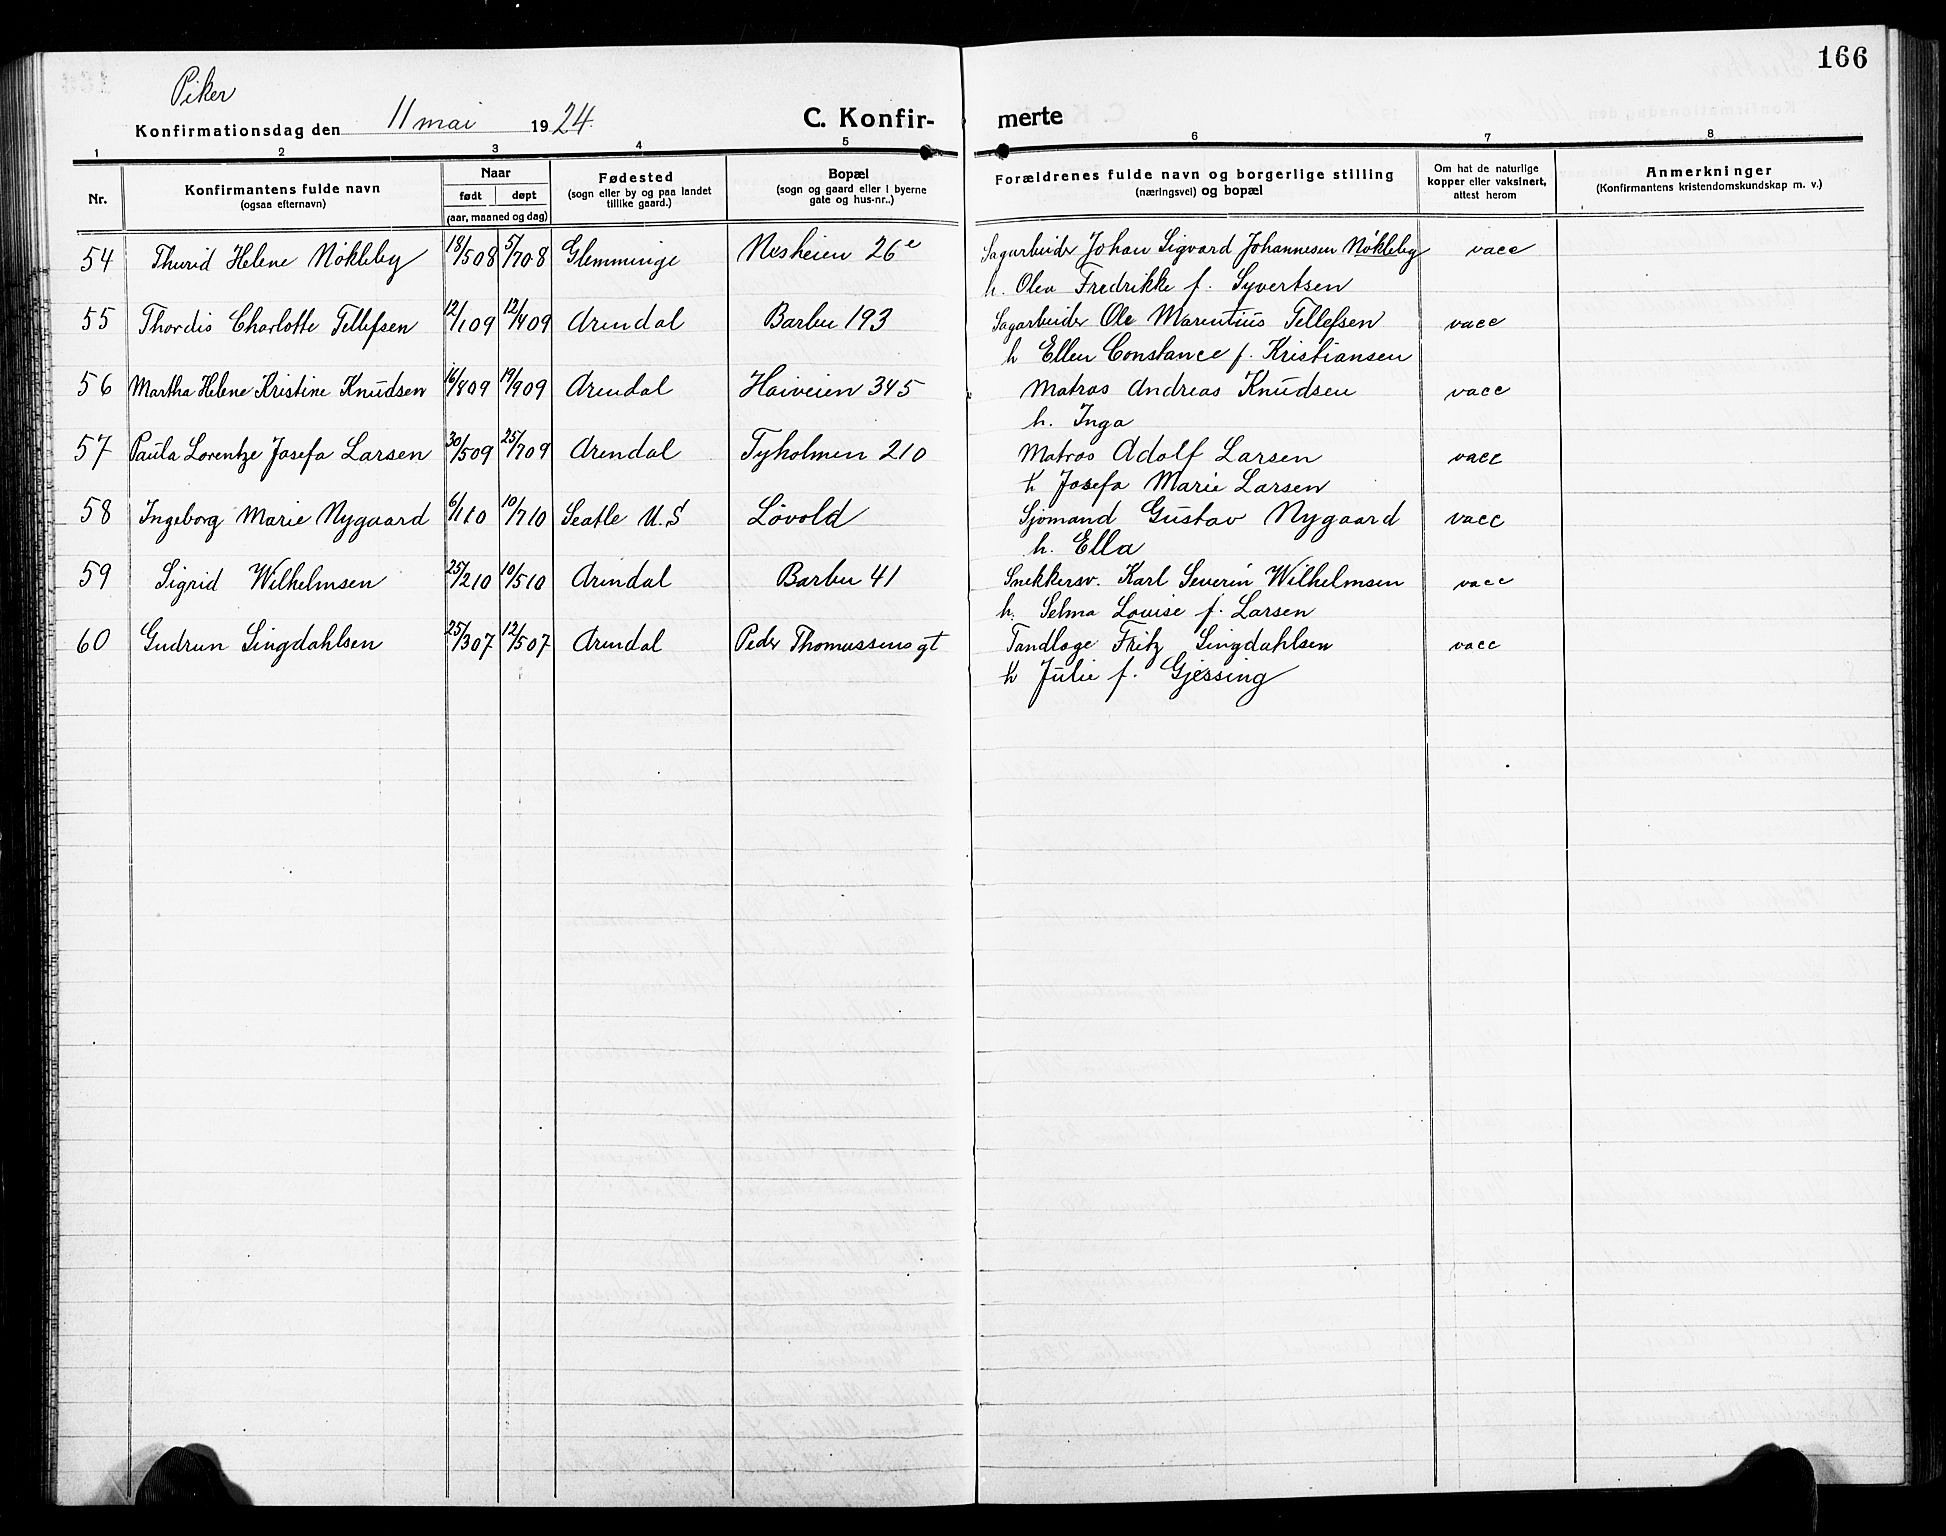 166
Piker
Konfirmationsdag den 11 mai 1924.
C. Konfir- merte
1 2 3 4 5 6 7 8
Nr.
Konfirmantens fulde navn
(ogsaa efternavn)
Naar
født døpt
(aar, maaned og dag)
Fødested
(sogn eller by og paa landet
tillike gaard.)
Bopæl
(sogn og gaard eller i byerne
gate og hus-nr..)
Forældrenes fulde navn og borgerlige stilling
(næringsvei) og bopæl
Om hat de naturlige
kopper eller vaksinert,
attest herom
Anmerkninger
(Konfirmantens kristendomskundskap m. v.)
54 Thurid Helene Nökleby 18/5 08 5/7 08 Glemminge Nesheien 26e Sagarbeider Johan Sigvard Johannesen Nökleby vacc
h. Olea Fredrikke f. Syvertsen
55 Thordis Charlotte Tellefsen 12/1 09 12/4 09 Arendal Barbu 193 Sagarbeider Ole Marentius Tellefsen vacc
h Ellen Constance f. Kristiansen
56 Martha Helene Kristine Knudsen 16/8 09 19/9 09 Arendal Haiveien 345 Matros Andreas Knudsen vacc
h. Inga
57 Paula Lorentze Josefa Larsen 30/5 09 25/7 09 Arendal Tyholmen 210 Matros Adolf Larsen vacc
h Josefa Marie Larsen
58 Ingeborg Marie Nygaard 6/1 10 10/7 10 Seatle U.S Lövold Sjömand Gustav Nygaard vacc
h. Ella
59 Sigrid Wilhelmsen 25/2 10 10/5 10 Arendal Barbu 41 Snekkersv. Karl Severin Wilhelmsen vacc
h. Selma Louise f. Larsen
60 Gudrun Singdahlsen 25/3 07 12/5 07 Arendal Peder Thomassens gt Tandlæge Fritz Singdahlsen vacc
h Julie f. Gjessing